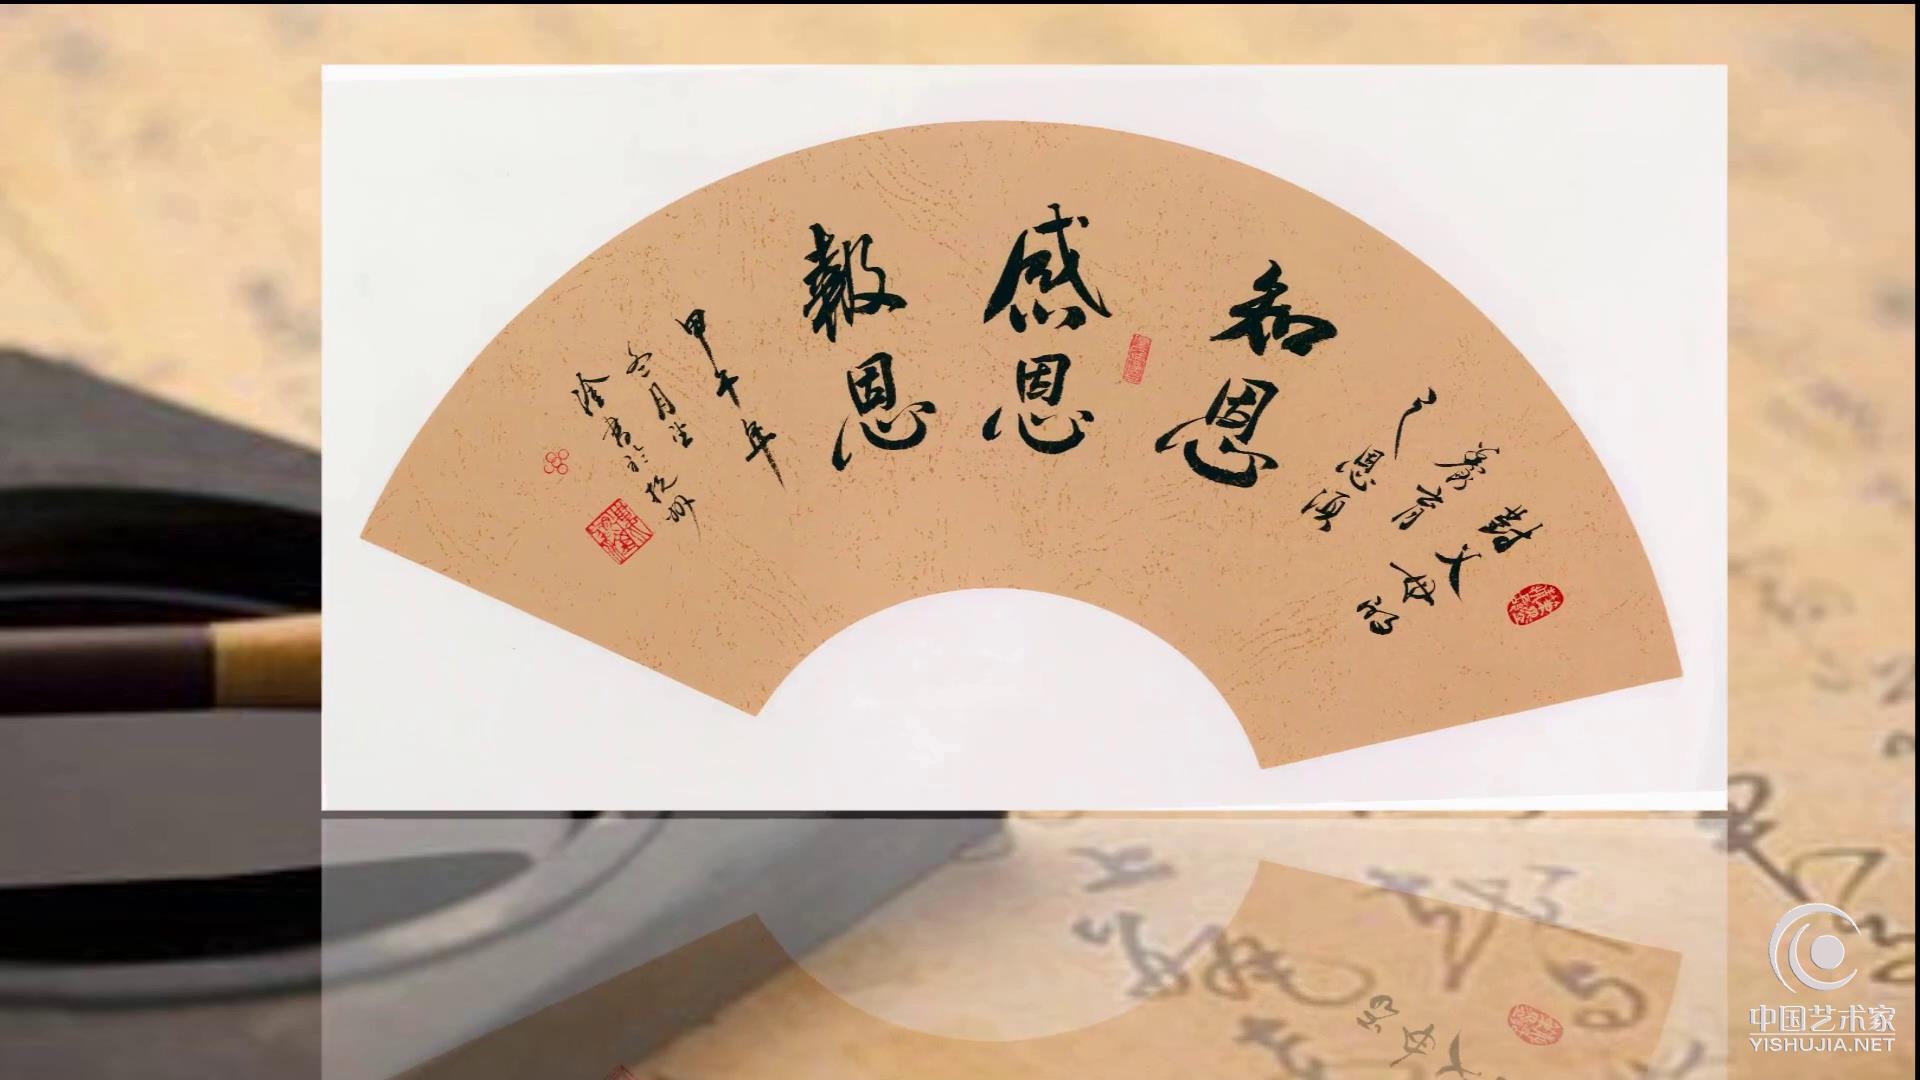 對父母的
養育
之恩須
知恩
感恩
報恩
甲午年
冬月
書於杭州
中国艺术家
YISHUJIA.NET